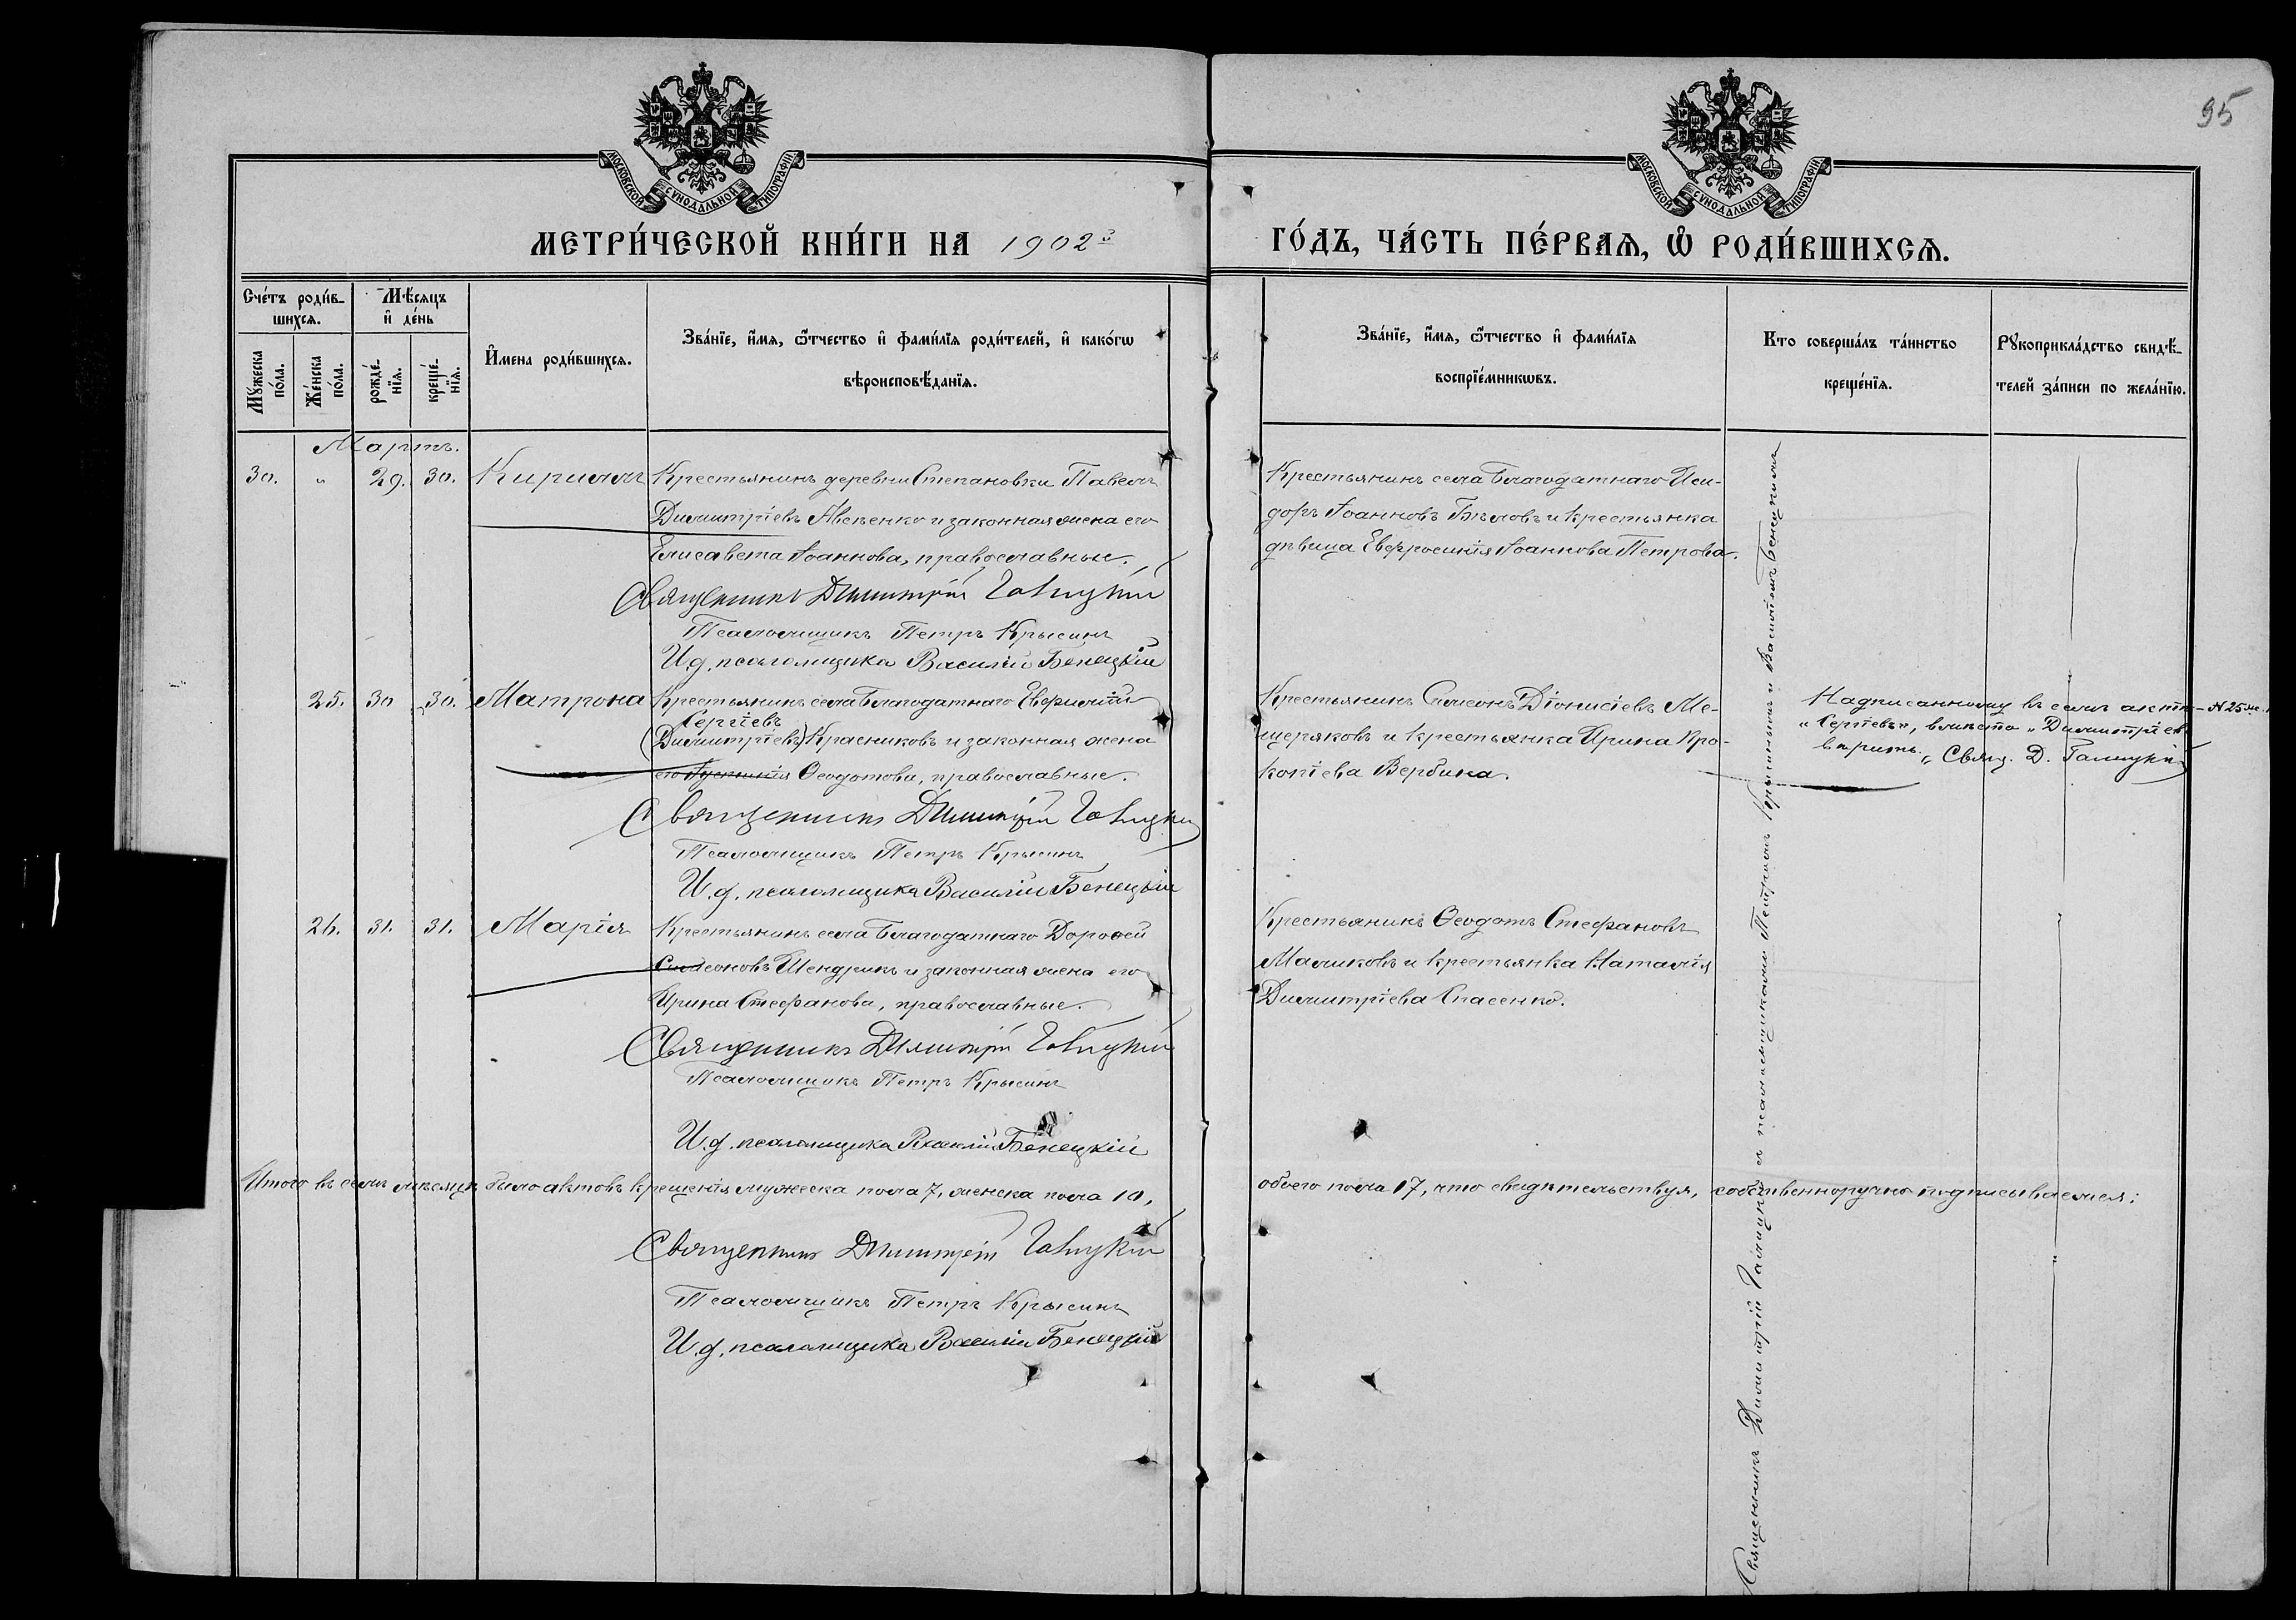 95
МОСКОВСКОЙ СѴНОДАЛЬНОЙ ТИПОГРАФІИ
МОСКОВСКОЙ СѴНОДАЛЬНОЙ ТИПОГРАФІИ
МЕТРИ́ЧЕСКОЙ КНИ́ГИ НА 1902й
ГО́ДЪ, ЧА́СТЬ ПЕ́РВАѦ, Ѽ РОДИ́ВШИХСѦ.
Сче́тъ роди́в-
шихсѧ.
Мꙋ́жеска по́ла.
Же́нска по́ла.
Мѣ́сѧцъ
и҆ де́нь
рожде́-
нїѧ.
креще́-
нїѧ.
И҆мена роди́вшихсѧ.
Зва́нїе, и҆́мѧ, ѻ҆́тчество и҆ фами́лїѧ роди́телей, и҆ како́гѡ
вѣроисповѣ́данїѧ.
Зва́нїе, и҆́мѧ, ѻ҆́тчество и҆ фами́лїѧ
воспрїе́мникѡвъ.
Кто соверша́лъ та́инство
креще́нїѧ.
Рꙋкоприкла́дство свидѣ́-
телей за́писи по жела́нїю.
Мартъ.
30. " 29. 30. Кириллъ
Крестьянинъ деревни Степановки Павелъ
Димитріевъ Авксенко и законная жена его
Елисавета Іоаннова, православные.
Священникъ Димитрій Галицкій
Псаломщикъ Петръ Крысинъ
И. д. псаломщика Василій Бенецкій
Крестьянинъ села Благодатнаго Иси-
доръ Іоанновъ Бѣловъ и крестьянка
дѣвица Евфросинія Іоаннова Петрова.
25. 30 30. Матрона
Крестьянинъ села Благодатнаго Евфимій
Сергіевъ
(Димитріевъ) Красниковъ и законная жена
его Іустинія Ѳеодотова, православные.
Священникъ Димитрій Галицкій
Псаломщикъ Петръ Крысинъ
И. д. псаломщика Василій Бенецкій
Крестьянинъ Симеонъ Діонисіевъ Ме-
щеряковъ и крестьянка Ирина Про-
копіева Вербина.
Надписанному въ семъ актѣ - № 25
"Сергіевъ", вмѣсто "Димитріев
вѣрить. Свящ. Д. Галицкій
26. 31. 31. Марія
Крестьянинъ села Благодатнаго Дороѳей
Симеоновъ Шендрикъ и законная жена его
Ирина Стефанова, православные.
Священникъ Димитрій Галицкій
Псаломщикъ Петръ Крысинъ
И. д. псаломщика Василій Бенецкій
Крестьянинъ Ѳеодотъ Стефановъ
Маликовъ и крестьянка Наталія
Димитріева Спасенко.
Итого въ семъ мѣсяцѣ было актовъ крещенія мужеска пола 7, женска пола 10,
обоего пола 17, что свидѣтельствуя, собственноручно подписываемся:
Священникъ Димитрій Галицкій
Псаломщикъ Петръ Крысинъ
И. д. псаломщика Василій Бенецкій
Священникъ Димитрій Галицкій съ псаломщиками Петромъ Крысинымъ и Василіемъ Бенецкимъ